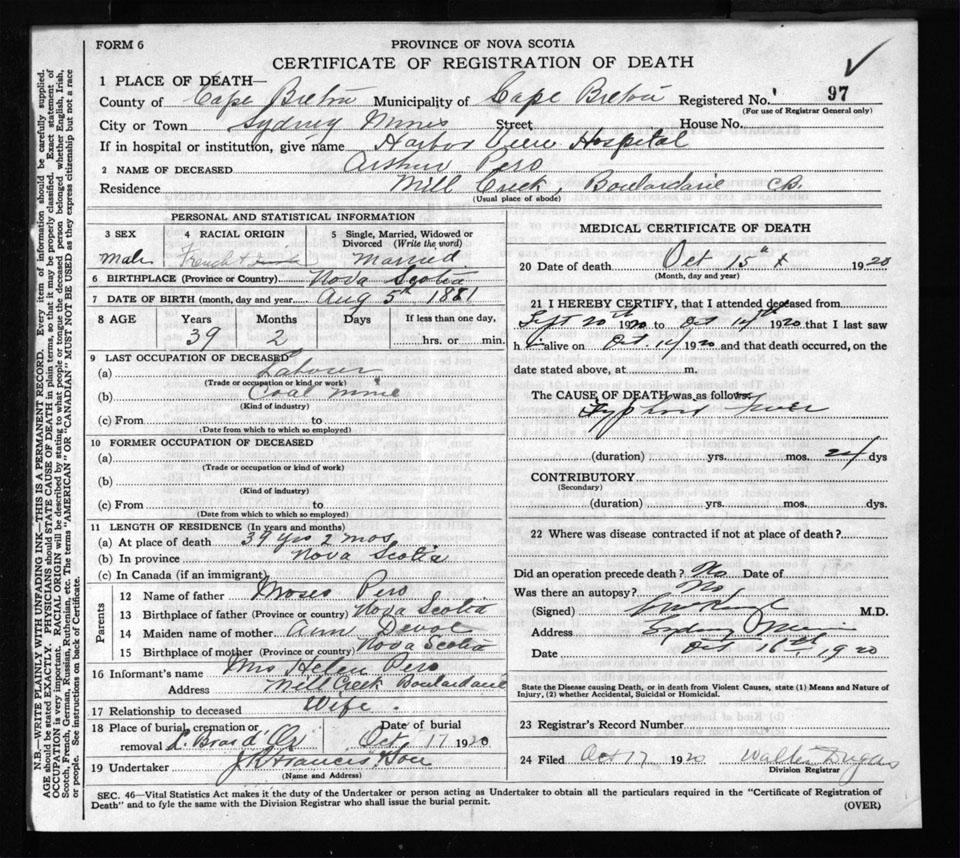 FORM 6
PROVINCE OF NOVA SCOTIA
CERTIFICATE OF REGISTRATION OF DEATH
1 PLACE OF DEATH—
County of Cape Breton Municipality of Cape Breton Registered No. 97
(For use of Registrar General only)
City or Town Sydney Mines Street House No.
If in hospital or institution, give name Harbor View Hospital
2 NAME OF DECEASED Arthur Pero
Residence Mill Creek, Boulardarie CB.
(Usual place of abode)
PERSONAL AND STATISTICAL INFORMATION
3 SEX
Male
4 RACIAL ORIGIN
French +
5 Single, Married, Widowed or Divorced (Write the word)
Married
6 BIRTHPLACE (Province or Country) Nova Scotia
7 DATE OF BIRTH (month, day and year) Aug 5th 1881
8 AGE Years Months Days If less than one day,
39 2 hrs. or min.
9 LAST OCCUPATION OF DECEASED
(a) Labourer
(Trade or occupation or kind or work)
(b) Coal mine
(Kind of industry)
(c) From to
(Date from which to which so employed)
10 FORMER OCCUPATION OF DECEASED
(a)
(Trade or occupation or kind of work)
(b)
(Kind of industry)
(c) From to
(Date from which to which so employed)
11 LENGTH OF RESIDENCE (In years and months)
(a) At place of death 39 yrs 2 mos
(b) In province Nova Scotia
(c) In Canada (if an immigrant)
Parents
12 Name of father Moses Pero
13 Birthplace of father (Province or country) Nova Scotia
14 Maiden name of mother Ann Devoe
15 Birthplace of mother (Province or country) Nova Scotia
16 Informant's name Mrs Helen Pero
Address Mill Creek Boulardarie
17 Relationship to deceased Wife.
18 Place of burial, cremation or removal L. Bras d'Or Date of burial Oct 17 1920
19 Undertaker J R Francis & Son
(Name and Address)
MEDICAL CERTIFICATE OF DEATH
20 Date of death Oct 15th 1920
(Month, day and year)
21 I HEREBY CERTIFY, that I attended deceased from
Sept 20th 1920 to Oct 14th 1920 that I last saw
h im alive on Oct. 14 1920 and that death occurred, on the
date stated above, at m.
The CAUSE OF DEATH was as follows:
Typhoid Fever
(duration) yrs. mos. 24 dys
CONTRIBUTORY
(Secondary)
(duration) yrs. mos. dys.
22 Where was disease contracted if not at place of death?
Did an operation precede death? No Date of
Was there an autopsy? No
(Signed) M.D.
Address Sydney Mines
Date Oct 16th 1920
State the Disease causing Death, or in death from Violent Causes, state (1) Means and Nature of
Injury, (2) whether Accidental, Suicidal or Homicidal.
23 Registrar's Record Number
24 Filed Oct 17 1920 Walter
Division Registrar
SEC. 46—Vital Statistics Act makes it the duty of the Undertaker or person acting as Undertaker to obtain all the particulars required in the "Certificate of Registration of
Death" and to fyle the same with the Division Registrar who shall issue the burial permit.
(OVER)
N.B.—WRITE PLAINLY WITH UNFADING INK—THIS IS A PERMANENT RECORD. Every item of information should be carefully supplied.
AGE should be stated EXACTLY. PHYSICIANS should STATE CAUSE OF DEATH in plain terms, so that it may be properly classified. Exact statement of
OCCUPATION is very important. RACIAL ORIGIN will be described by stating to what people or tongue the deceased person belonged, whether English, Irish,
Scotch, French, German, Russian, Ruthenian, etc. The terms "AMERICAN" OR "CANADIAN" MUST NOT BE USED as they express citizenship but not a race
or people. See instructions on back of Certificate.